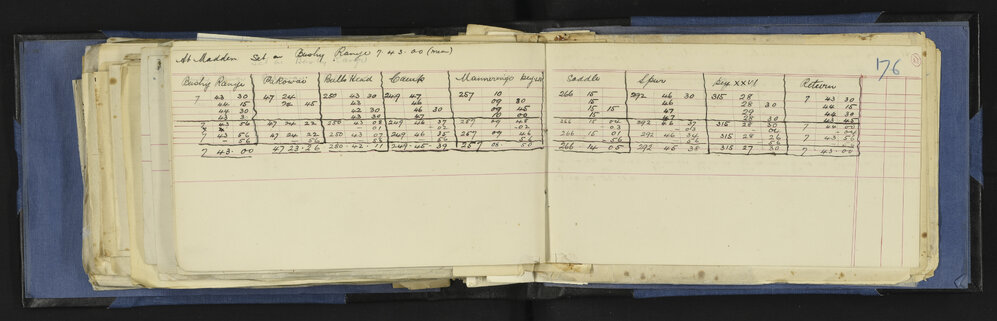 At Madden Set on Bushy Range 7.43.00 (mean)
176
Bushy Range Pikowai Balls Head Saddle Spur Six XXVI Return
7 43 30 47 24 250 43 30 249 47 257 10 266 15 292 46 30 315 28 7 43 30
44 15 45 43 46 09 30 15 46 28 30 44 15
44 30 42 30 46 30 09 45 15 15 47 29 44 30
43 30 47 10 00 15 47 28 30 43 45
7 43 56 47 24 22 250 43 08 249 46 37 257 09 48 266 15 04 292 46 37 315 28 30 7 44 00
- 01 - 02 - 02 - 03 - 03 - 04 - 04
7 43 56 47 24 22 250 43 07 249 46 35 257 09 46 266 15 01 292 46 34 315 28 26 7 43 56
- 56 - 56 - 56 - 56 - 56 - 56 - 56 - 56
7 43.00 47 23.26 250.42.11 249.45.39 257 08.50 266 14 05 292 45 38 315 27 30 7 43.00